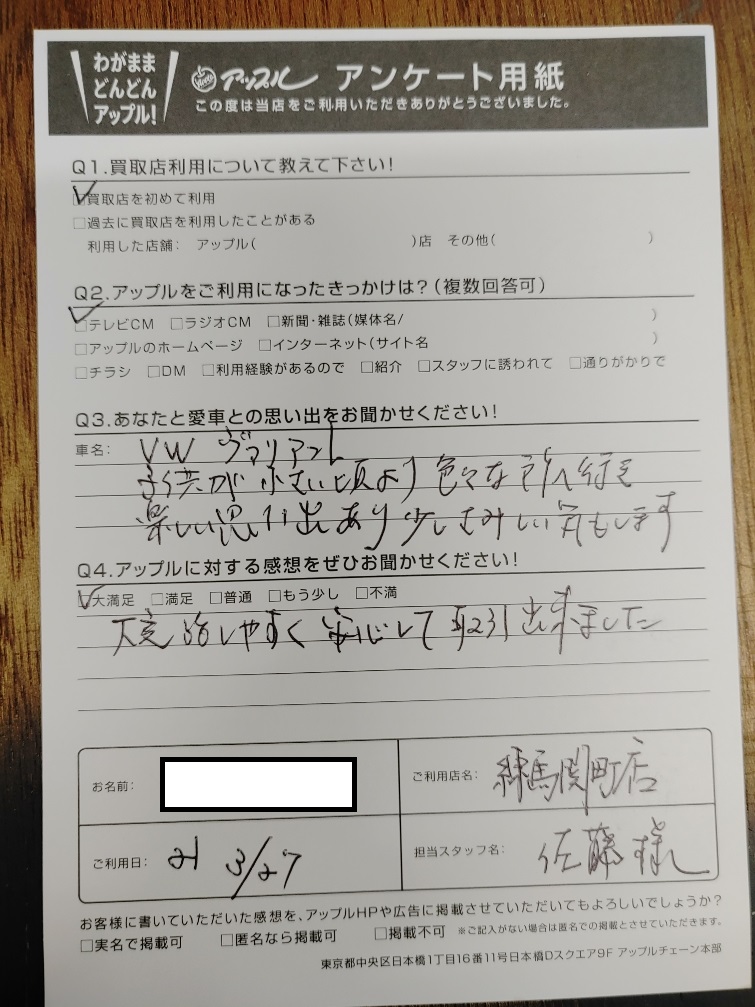 わがまま
どんどん
アップル!
アップル アンケート用紙
この度は当店をご利用いただきありがとうございました。
Q1.買取店利用について教えて下さい!
☑買取店を初めて利用
□過去に買取店を利用したことがある
利用した店舗: アップル( )店 その他( )
Q2.アップルをご利用になったきっかけは?(複数回答可)
☑テレビCM □ラジオCM □新聞・雑誌(媒体名/ )
□アップルのホームページ □インターネット(サイト名 )
□チラシ □DM □利用経験があるので □紹介 □スタッフに誘われて □通りがかりで
Q3.あなたと愛車との思い出をお聞かせください!
車名: VW ヴァリアント
子供が小さい頃より色々な所へ行き
楽しい思い出あり少しさみしい気もします
Q4.アップルに対する感想をぜひお聞かせください!
☑大満足 □満足 □普通 □もう少し □不満
大変話しやすく安心して取引出来ました
お名前:
ご利用店名: 練馬関町店
ご利用日: 21 3/27
担当スタッフ名: 佐藤様
お客様に書いていただいた感想を、アップルHPや広告に掲載させていただいてもよろしいでしょうか?
□実名で掲載可 □匿名なら掲載可 □掲載不可 ※ご記入がない場合は匿名での掲載とさせていただきます。
東京都中央区日本橋1丁目16番11号日本橋Dスクエア9F アップルチェーン本部